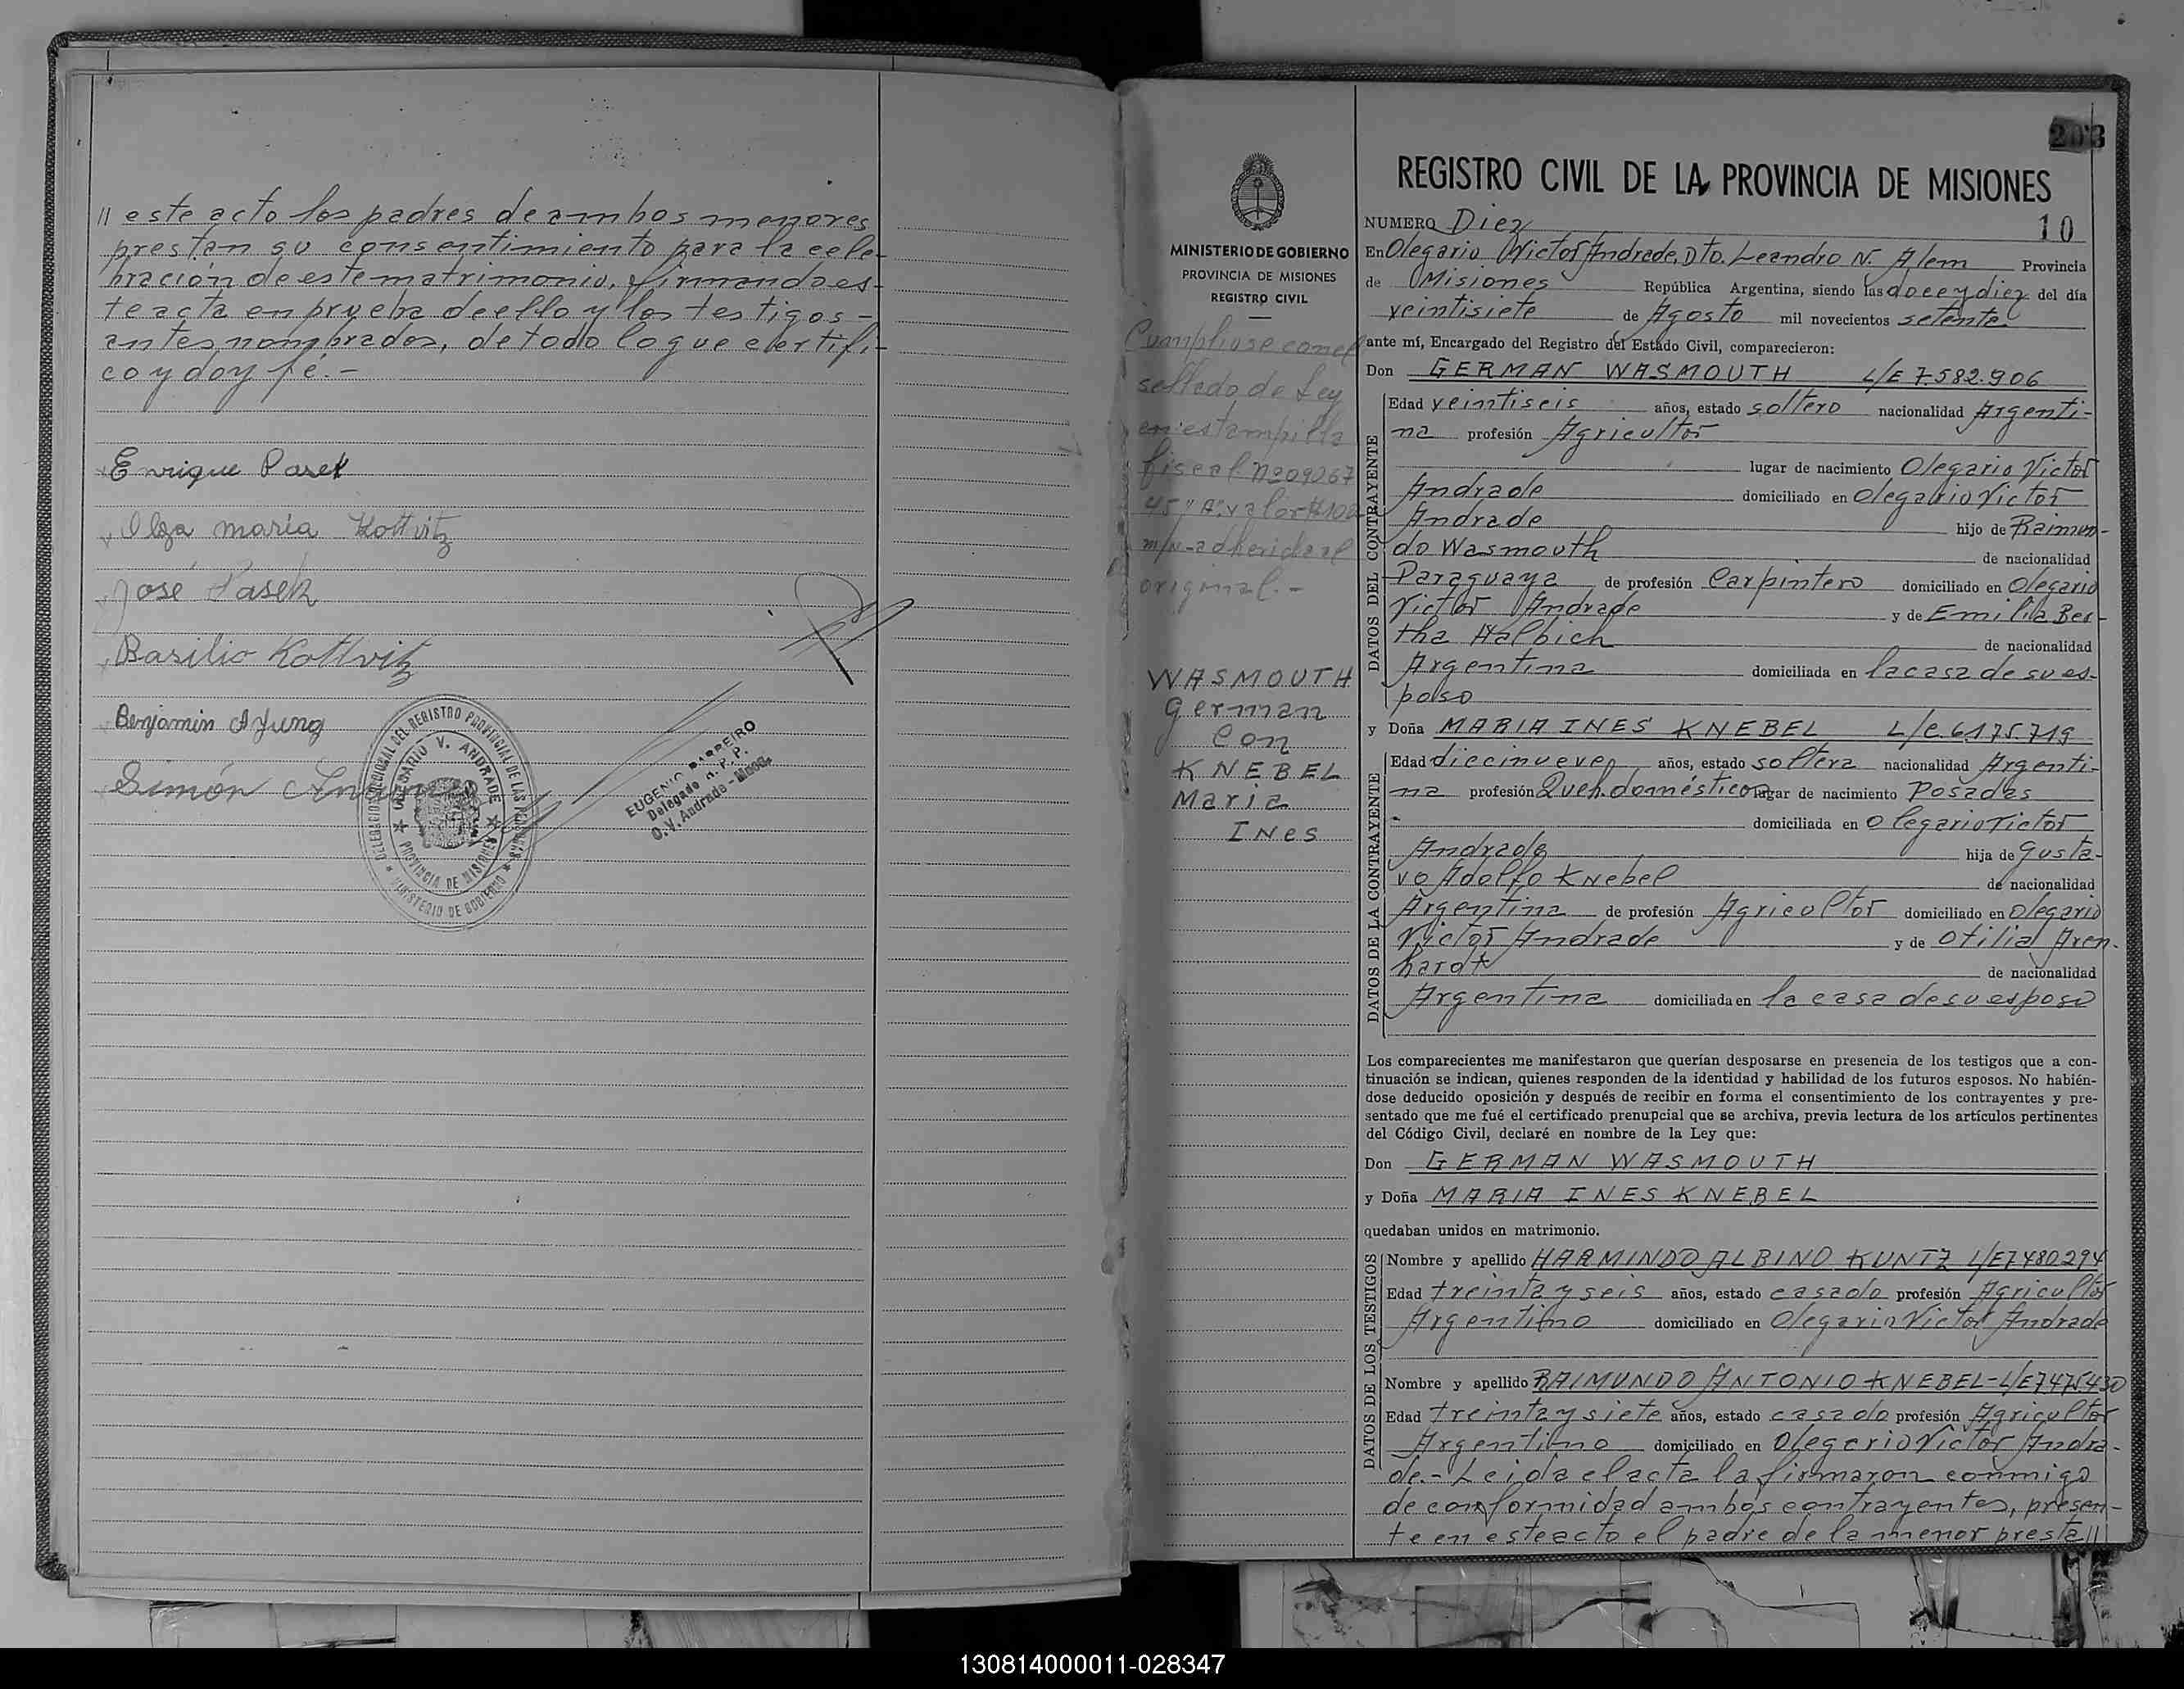 // este acto los padres de ambos menores
prestan su consentimiento para la cele-
bración de este matrimonio, firmando es-
te acta en prueba de ello y los testigos -
antes nombrados, de todo lo que certifi-
co y doy fé.-
Enrique Pasek
Olga maria Kottvitz
José Pasek
Basilio Kottvitz
Benjamin A Jung
Simón
DELEGACION REGIONAL DEL REGISTRO PROVINCIAL DE LAS PERSONAS
MINISTERIO DE GOBIERNO
OLEGARIO V. ANDRADE
PROVINCIA DE MISIONES
EUGENIO BARREIRO
Delegado R. P. P.
O. V. Andrade - Mnes.
203
MINISTERIO DE GOBIERNO
PROVINCIA DE MISIONES
REGISTRO CIVIL
Cumpliose con el
sellado de Ley
en estampilla
fiscal Nº 09267
45 "A" valor $ 100
m/n - adherida al
original.-
WASMOUTH
German
Con
KNEBEL
Maria
INes
REGISTRO CIVIL DE LA PROVINCIA DE MISIONES
NUMERO Diez 10
En Olegario Victor Andrade, Dto. Leandro N. Alem Provincia
de Misiones República Argentina, siendo las doce y diez del día
veintisiete de Agosto mil novecientos setenta
ante mí, Encargado del Registro del Estado Civil, comparecieron:
Don GERMAN WASMOUTH L/E 7.582.906
DATOS DEL CONTRAYENTE
Edad veintiseis años, estado soltero nacionalidad Argenti-
na profesión Agricultor
lugar de nacimiento Olegario Victor
Andrade domiciliado en Olegario Victor
Andrade hijo de Raimun-
do Wasmouth de nacionalidad
Paraguaya de profesión Carpintero domiciliado en Olegario
Victor Andrade y de Emilia Ber-
tha Halbich de nacionalidad
Argentina domiciliada en la casa de su es-
poso
y Doña MARIA INES KNEBEL L/C. 6.175.719
DATOS DE LA CONTRAYENTE
Edad diecinueve años, estado soltera nacionalidad Argenti-
na profesión Queh. domésticos lugar de nacimiento Posadas
domiciliada en Olegario Victor
Andrade hija de Gusta-
vo Adolfo Knebel de nacionalidad
Argentina de profesión Agricultor domiciliado en Olegario
Victor Andrade y de Otilia Aren-
hardt de nacionalidad
Argentina domiciliada en la casa de su esposo
Los comparecientes me manifestaron que querían desposarse en presencia de los testigos que a con-
tinuación se indican, quienes responden de la identidad y habilidad de los futuros esposos. No habién-
dose deducido oposición y después de recibir en forma el consentimiento de los contrayentes y pre-
sentado que me fué el certificado prenupcial que se archiva, previa lectura de los artículos pertinentes
del Código Civil, declaré en nombre de la Ley que:
Don GERMAN WASMOUTH
y Doña MARIA INES KNEBEL
quedaban unidos en matrimonio.
DATOS DE LOS TESTIGOS
Nombre y apellido HARMINDO ALBINO KUNTZ L/E 7480294
Edad treinta y seis años, estado casado profesión Agricultor
Argentino domiciliado en Olegario Victor Andrade
Nombre y apellido RAIMUNDO ANTONIO KNEBEL-L/E 7475430
Edad treinta y siete años, estado casado profesión Agricultor
Argentino domiciliado en Olegario Victor Andra-
de.- Leida el acta la firmaron conmigo
de conformidad ambos contrayentes, presen-
te en este acto el padre de la menor presta//
130814000011-028347